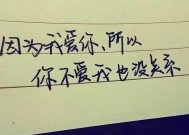 因为我爱你、所以
你不爱我也没关系